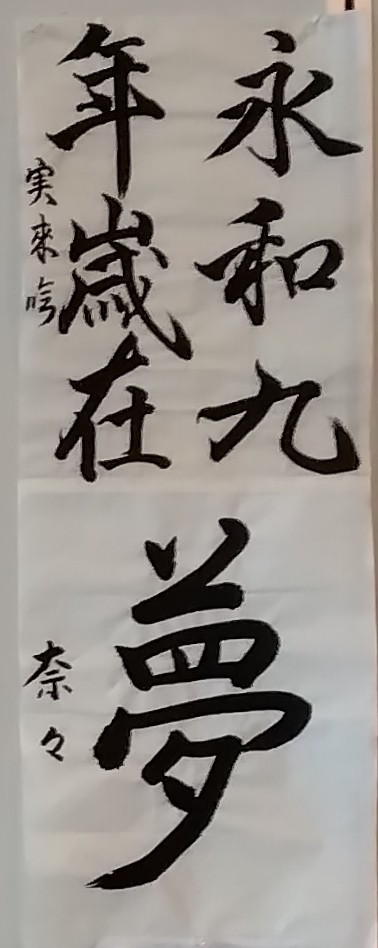 永和九
年歳在
実來吟
夢
奈々